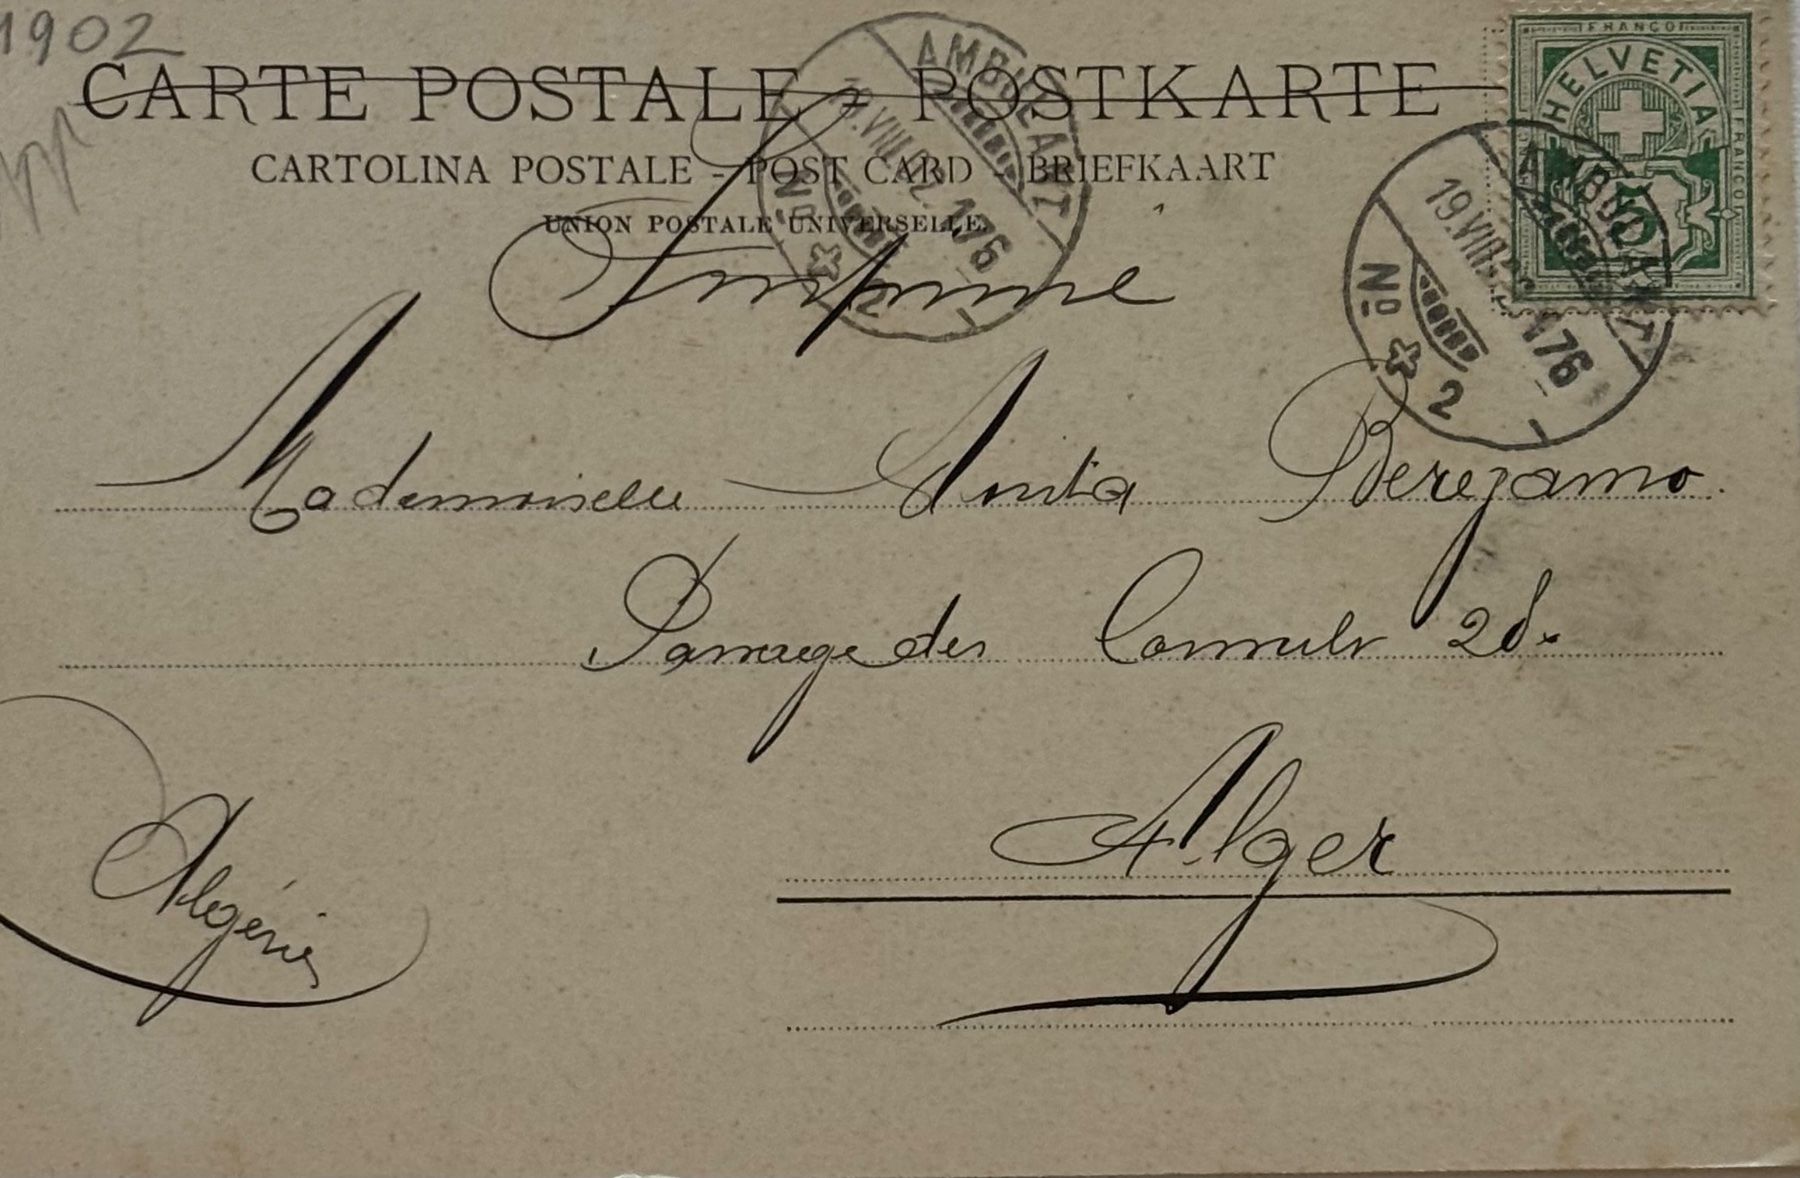 1902
CARTE POSTALE - POSTKARTE
CARTOLINA POSTALE - POST CARD - BRIEFKAART
UNION POSTALE UNIVERSELLE
Imprimé
AMBULANT
19.VIII.02.176
No 2
FRANCO
HELVETIA
FRANCO
5
AMBULANT
19.VIII.02.176
No 2
Mademoiselle Anita Bergamo
Passage des Consuls 2d.
Alger
Algérie